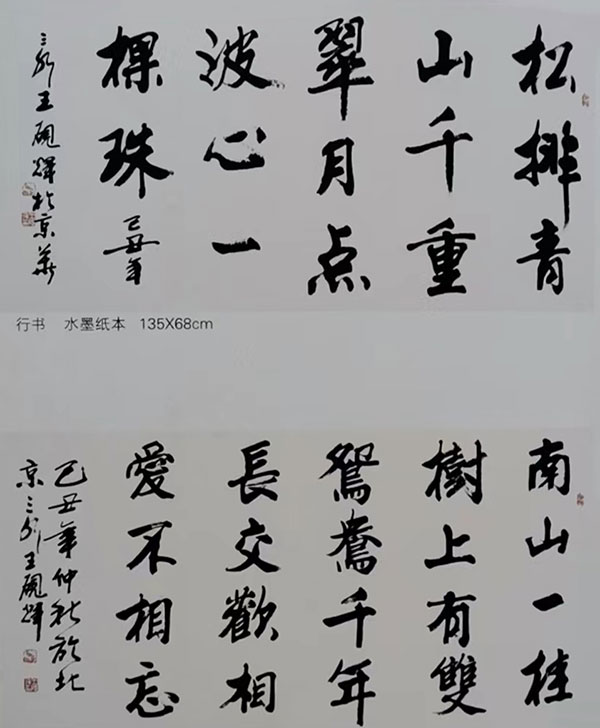 松排青
山千重
翠月点
波心一
棵珠己丑年
三州王砚辉於京華
行书 水墨纸本 135X68cm
南山一桂
樹上有雙
鴛鴦千年
長交歡相
愛不相忘
己丑年仲秋於北
京三州王砚辉